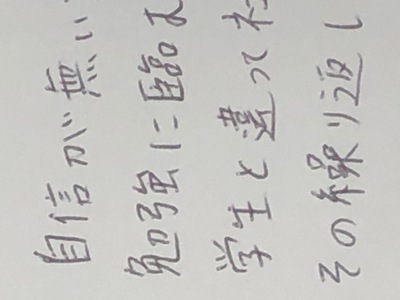 自信が無い
勉強に臨
学生と違って
その繰り返し